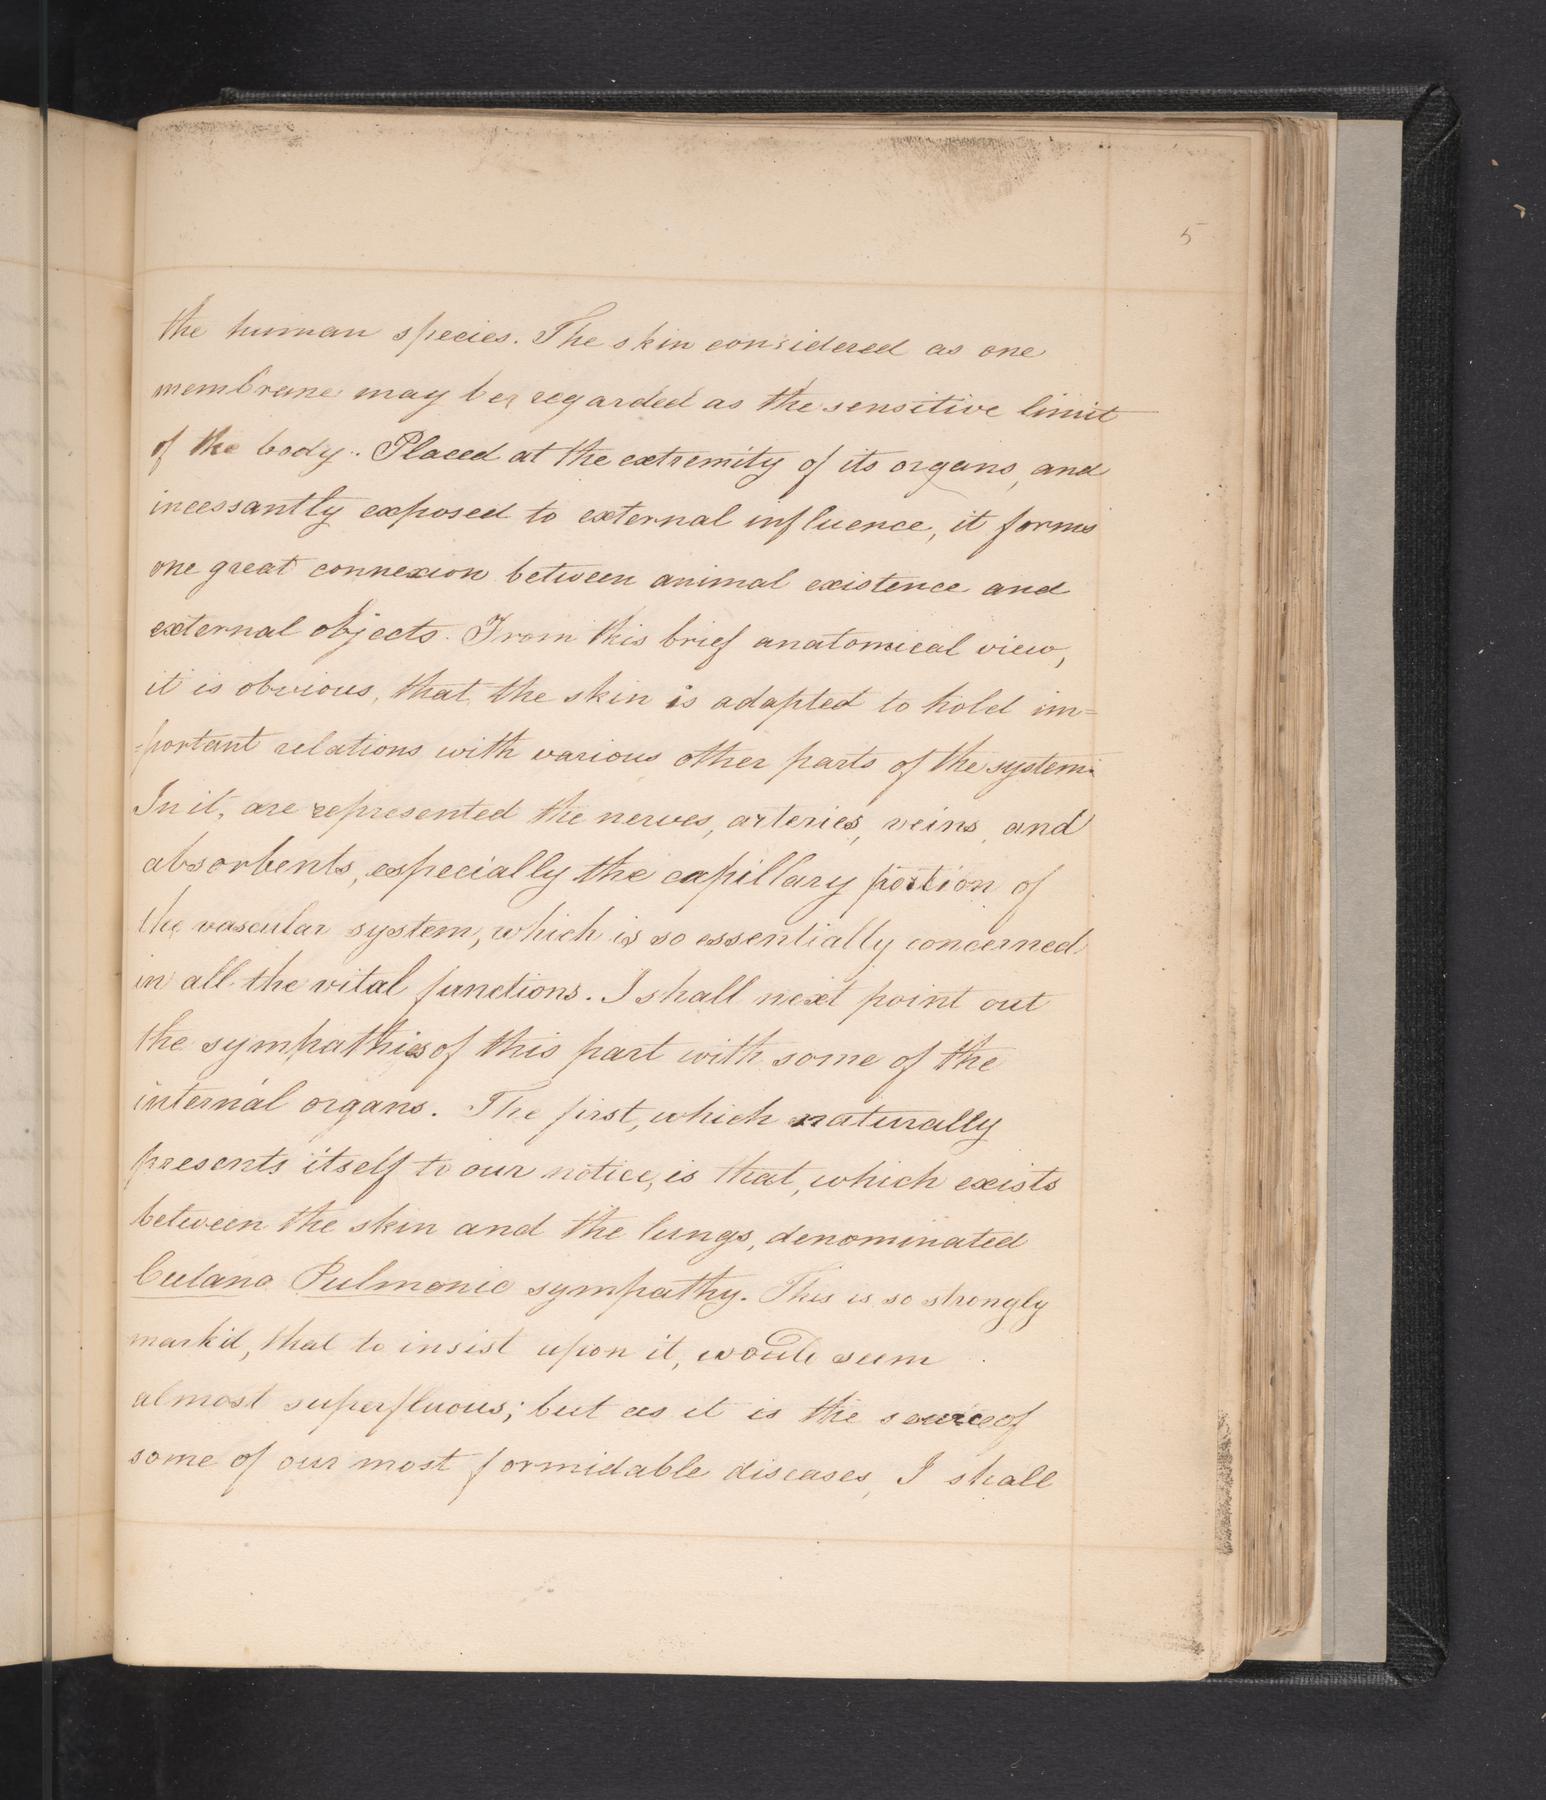 5
the human species. The skin considered as one
membrane may be regarded as the sensitive limit
of the body. Placed at the extremity of its organs, and
incessantly exposed to external influence, it forms
one great connexion between animal existence and
external objects. From this brief anatomical view,
it is obvious, that the skin is adapted to hold im=
=portant relations with various other parts of the system.
In it, are represented the nerves, arteries, veins, and
absorbents, especially the capillary portion of
the vascular system, which is so essentially concerned
in all the vital functions. I shall next point out
the sympathies of this part with some of the
internal organs. The first, which naturally
presents itself to our notice, is that, which exists
between the skin and the lungs, denominated
Cutano Pulmonic sympathy. This is so strongly
mark'd, that to insist upon it, would seem
almost superfluous; but as it is the source of
some of our most formidable diseases, I shall